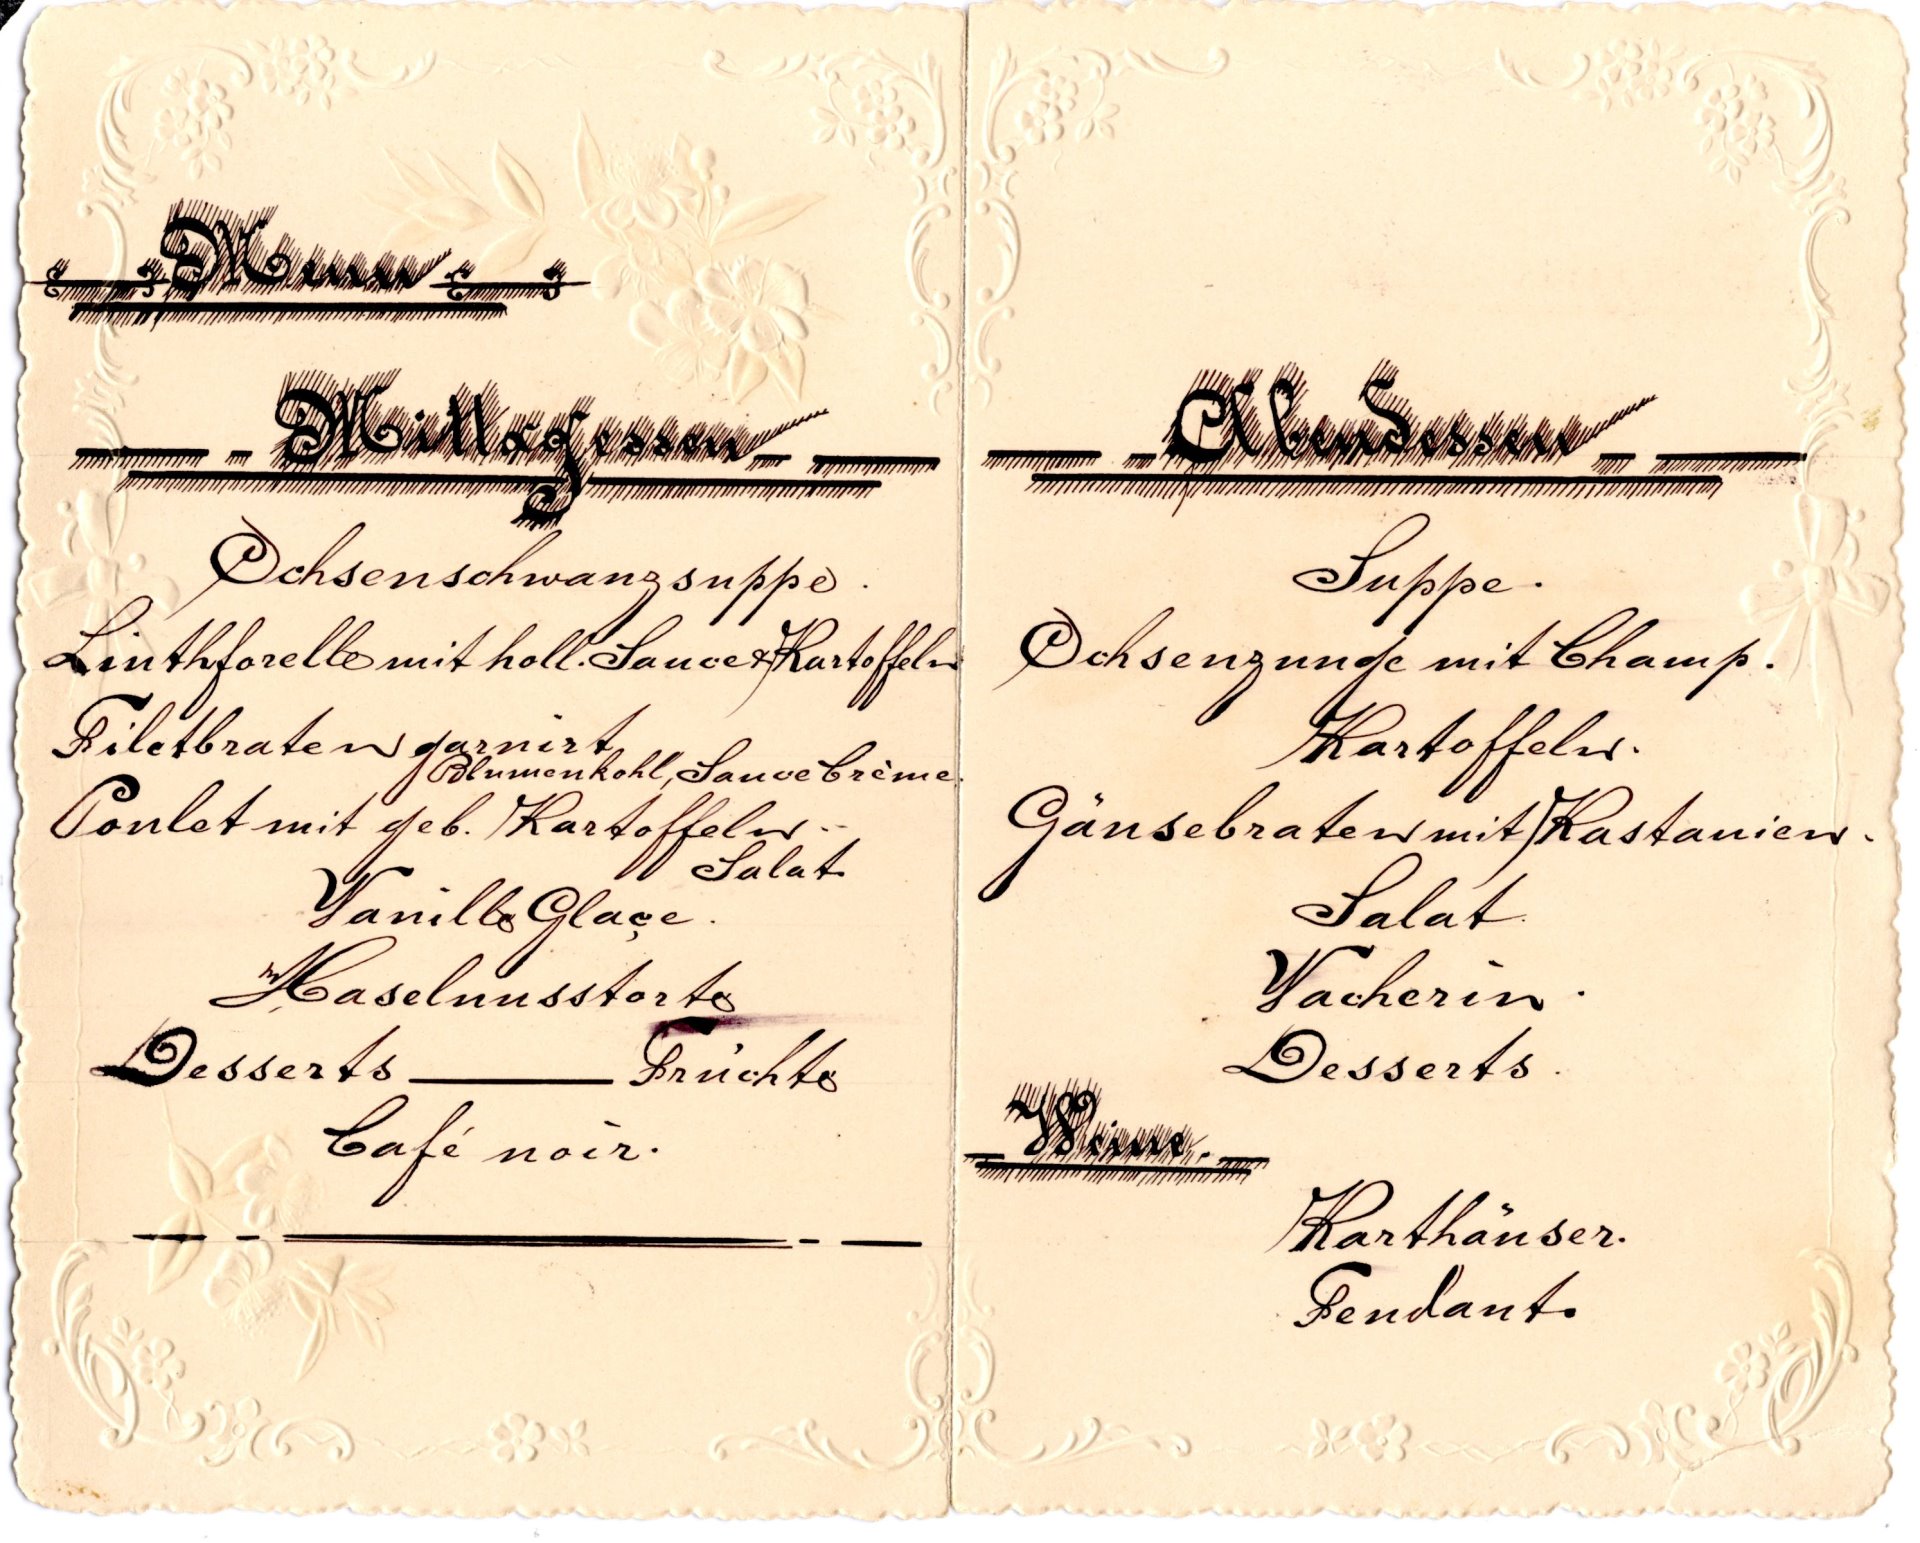 Menu
Mittagessen
Ochsenschwanzsuppe.
Linthforelle mit holl. Sauce & Kartoffeln
Filetbraten garnirt
Blumenkohl, Sauce Crème.
Poulet mit geb. Kartoffeln.
Salat
Vanille Glaçe.
Haselnusstorte
Desserts — Früchte
Café noir.
Abendessen
Suppe.
Ochsenzunge mit Champ.
Kartoffeln.
Gänsebraten mit Kastanien.
Salat.
Vacherin.
Desserts.
Weine.
Karthäuser.
Fendant.